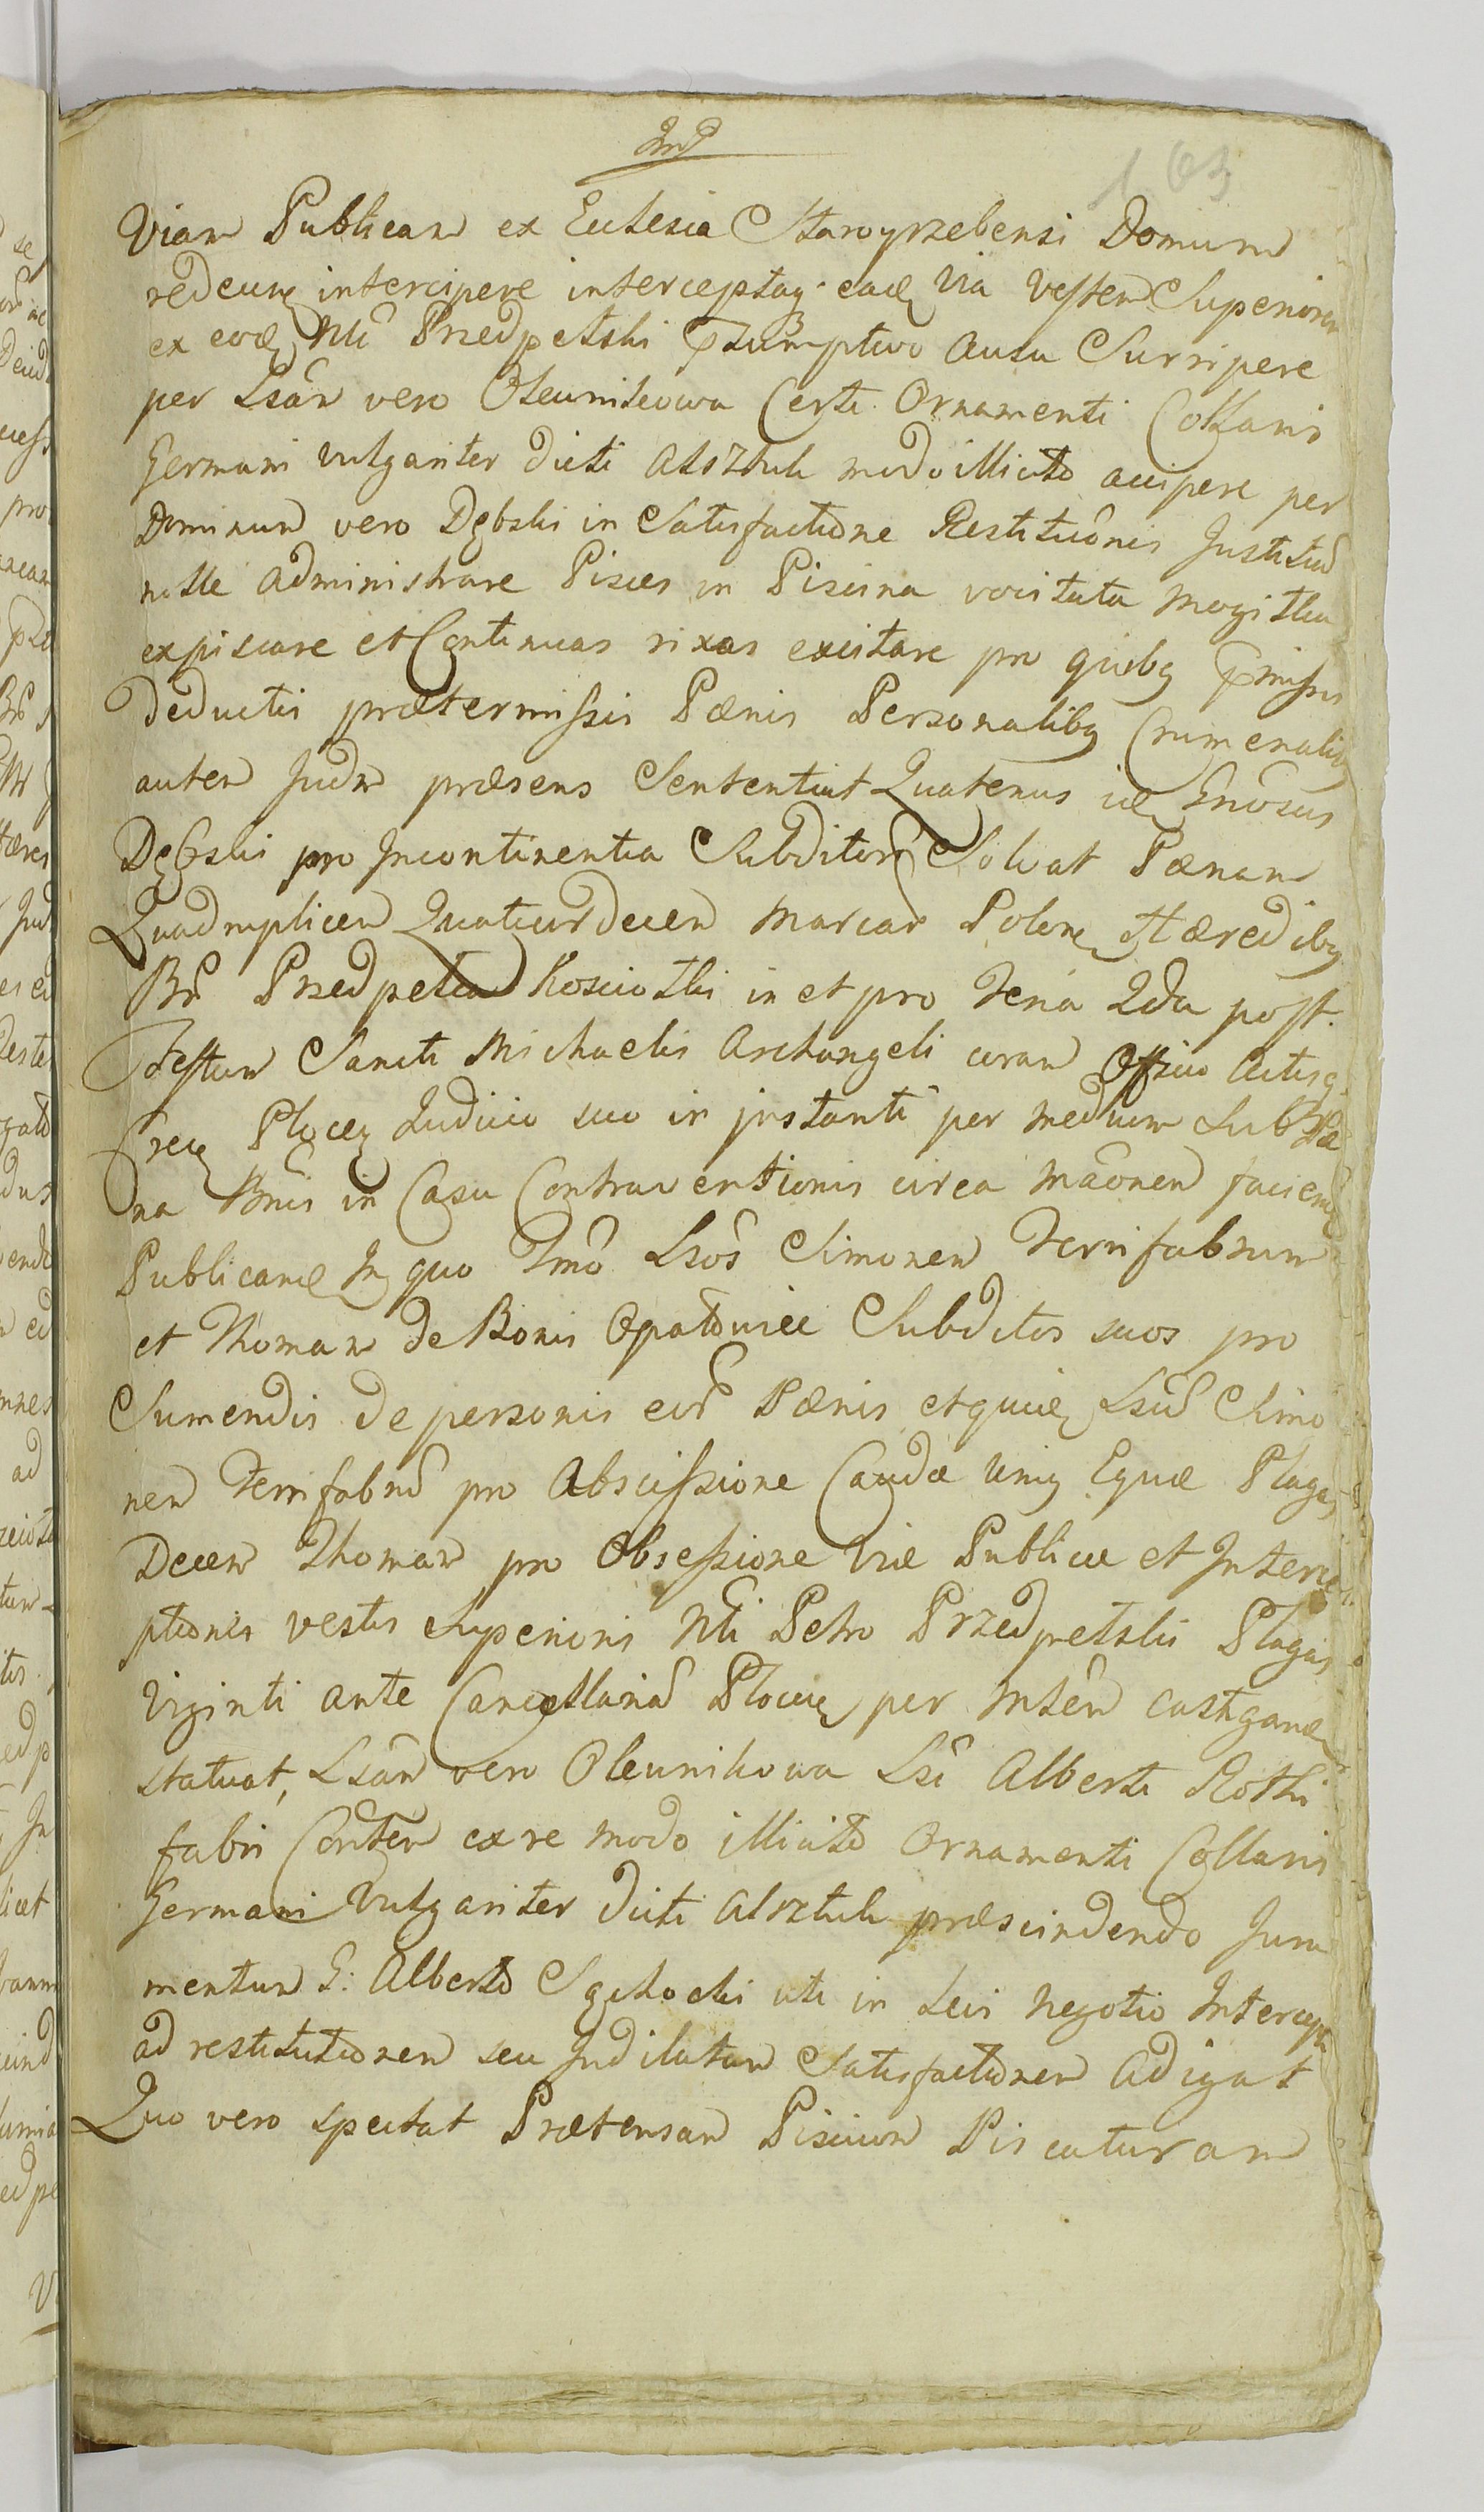 2md
163
Viam Publicam ex Eclesia Starogrzebensi Domum
redeunt intercipere interceptaq; eade Via Vestem Superiorem
ex eode Nli Przedpełski psumptivo Ausu Surripere
per Lsam vero Oleunikowa Certi Ornamenti Collaris
Germani vulgariter dicti Alsztuk modo illicito accipere per
Dominum vero Dębski in Satisfactione Restituonis Justitiam
nolle administrare Pisces in Piscina vocitata
expiscare et Continuas rixas excitare pro quibq pmissis
deductis prætermissis Pænis Personalibq Crimenalibq
autem Judm præsens Sententiat Quatenus ide Gnosus
Dębski pro Incontinentia Subditor Solvat Pænam
Quadruplicem Quatuordecem Marcar Polone Hæredibq
Bo Przedpełka Kosciołki in et pro Feria 2da post
Festum Sancti Michaelis Archangeli coram Officio Actisq
Plocen Judicio suo in instanti per medium sub Pæ
na Bnis in Casu Contraventionis circa Maonem faciend
Publicand In quo Imo Lsos Simonem Ferrifabrum
et Thomam de Bonis Opatowiec Subditos suos pro
Sumendis de personis eor Pænis et quide Lsum Simo
nem Ferrifabrum pro Abscissione Caudæ Uniq Equæ Plagas
Decem Thomam pro Obsessione Viæ Publicæ et Interce
ptionis vestis Superioris Nli Petro Przedpełski Plagas
Viginti ante Cancellariam Plocen per Mstrm castigand
statuat, Lsam vero Oleunikowa Lsi Alberti Kotki
fabri Contem ex re modo illicito Ornamenti Collaris
Germani Vulgariter dicti Alsztuk præscindendo Jura
mentum G: Alberto Sękocki uti in sui negotio Intercepti
ad restitutionem seu Indilatam Satisfactionem Adigat
Quo vero spectat Prætensam Piscium Piscaturam